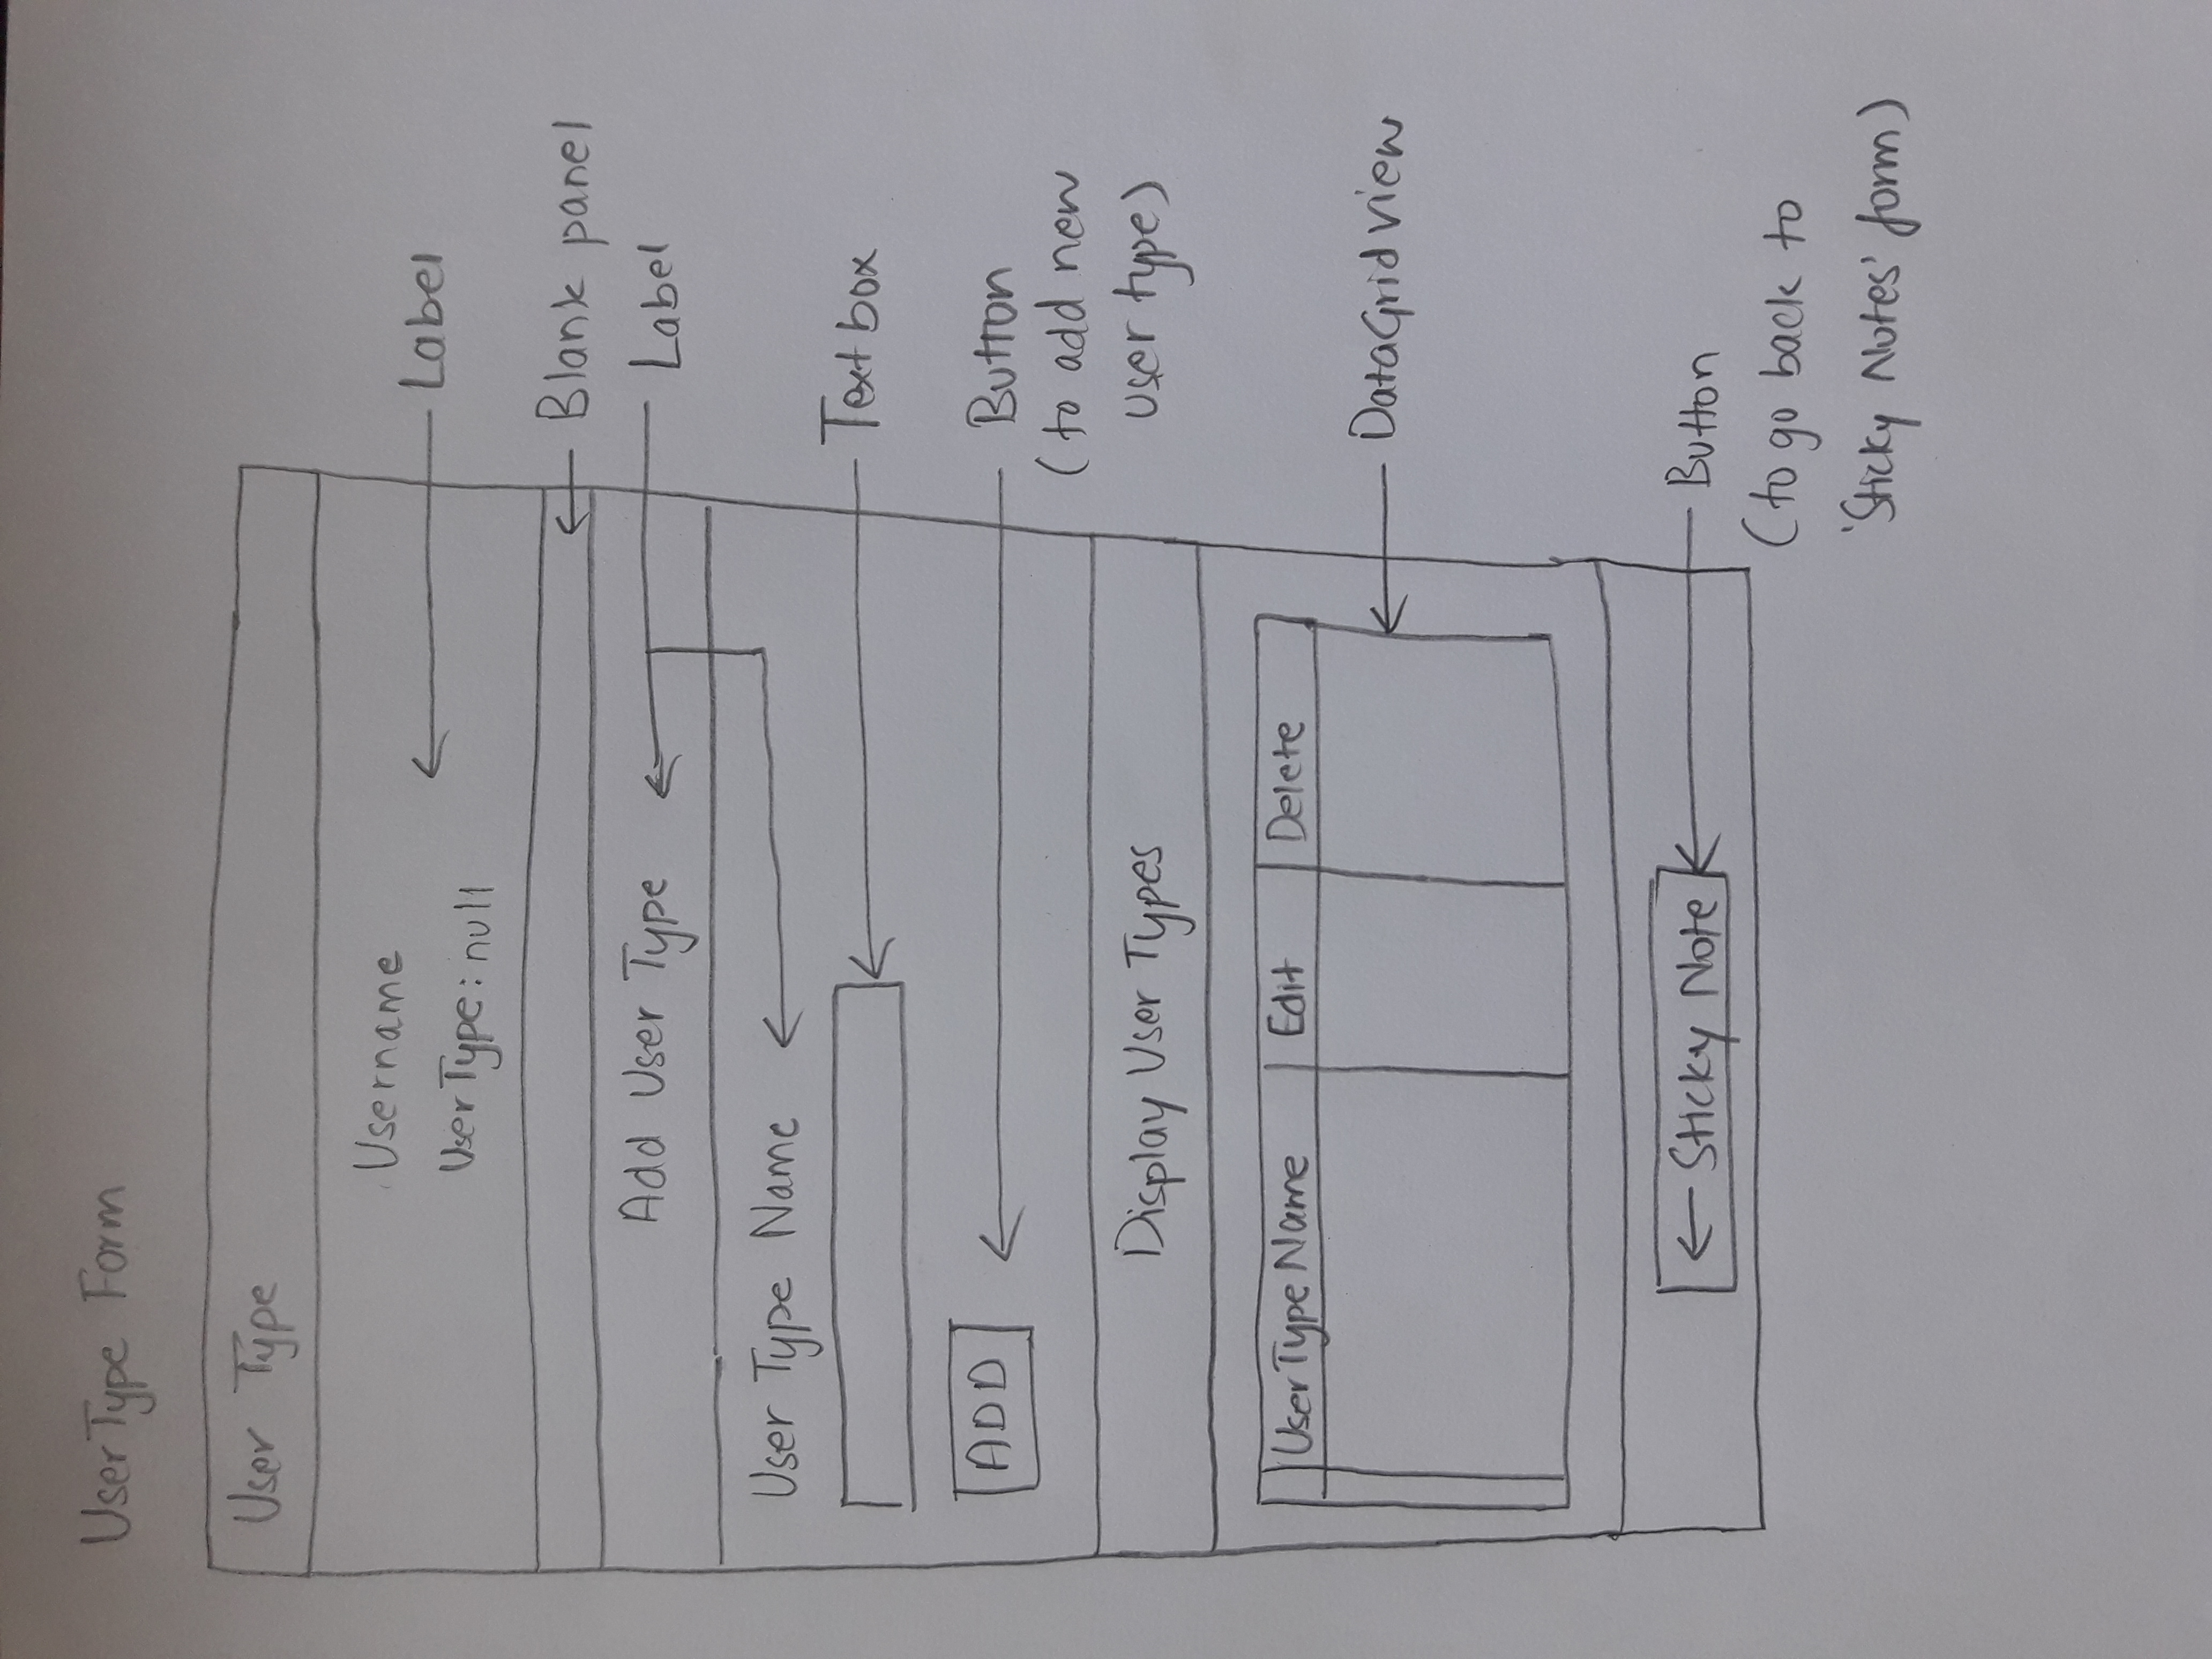 UserType Form
User Type
Username
UserType: null
Label
Blank panel
Add User Type
Label
User Type Name
Textbox
ADD
Button
(to add new
user type)
Display User Types
UserTypeName Edit Delete
DataGridview
← Sticky Note
Button
(to go back to
'Sticky Notes' form)